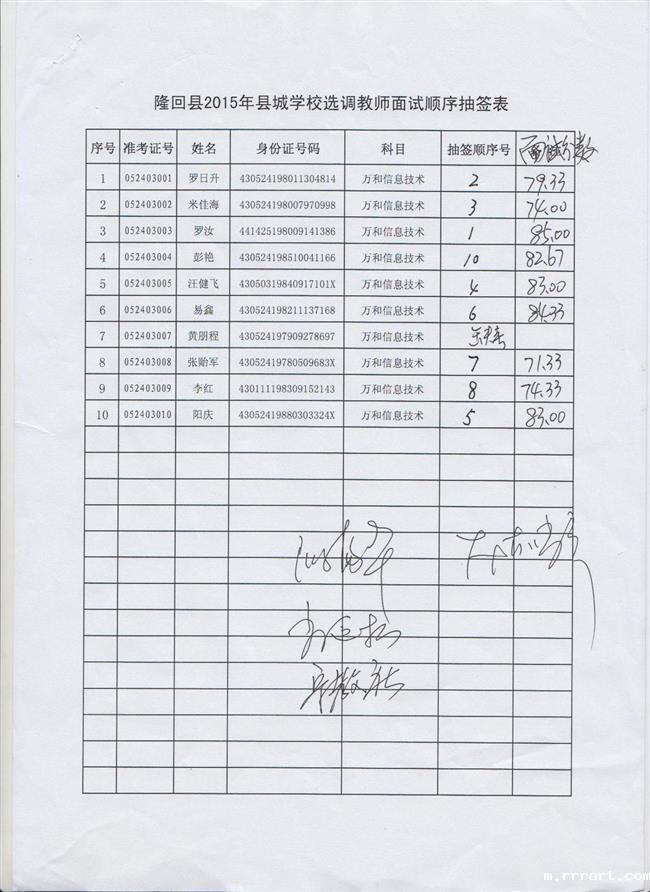 隆回县2015年县城学校选调教师面试顺序抽签表
序号 准考证号 姓名 身份证号码 科目 抽签顺序号 面试分数
1 052403001 罗日升 430524198011304814 万和信息技术 2 79.33
2 052403002 米佳海 430524198007970998 万和信息技术 3 74.00
3 052403003 罗汝 441425198009141386 万和信息技术 1 85.00
4 052403004 彭艳 430524198510041166 万和信息技术 10 82.67
5 052403005 汪健飞 43050319840917101X 万和信息技术 4 83.00
6 052403006 易鑫 430524198211137168 万和信息技术 6 84.33
7 052403007 黄朋程 430524197909278697 万和信息技术
8 052403008 张贻军 43052419780509683X 万和信息技术 7 71.33
9 052403009 李红 430111198309152143 万和信息技术 8 74.33
10 052403010 阳庆 43052419880303324X 万和信息技术 5 83.00
m.rrrart.com